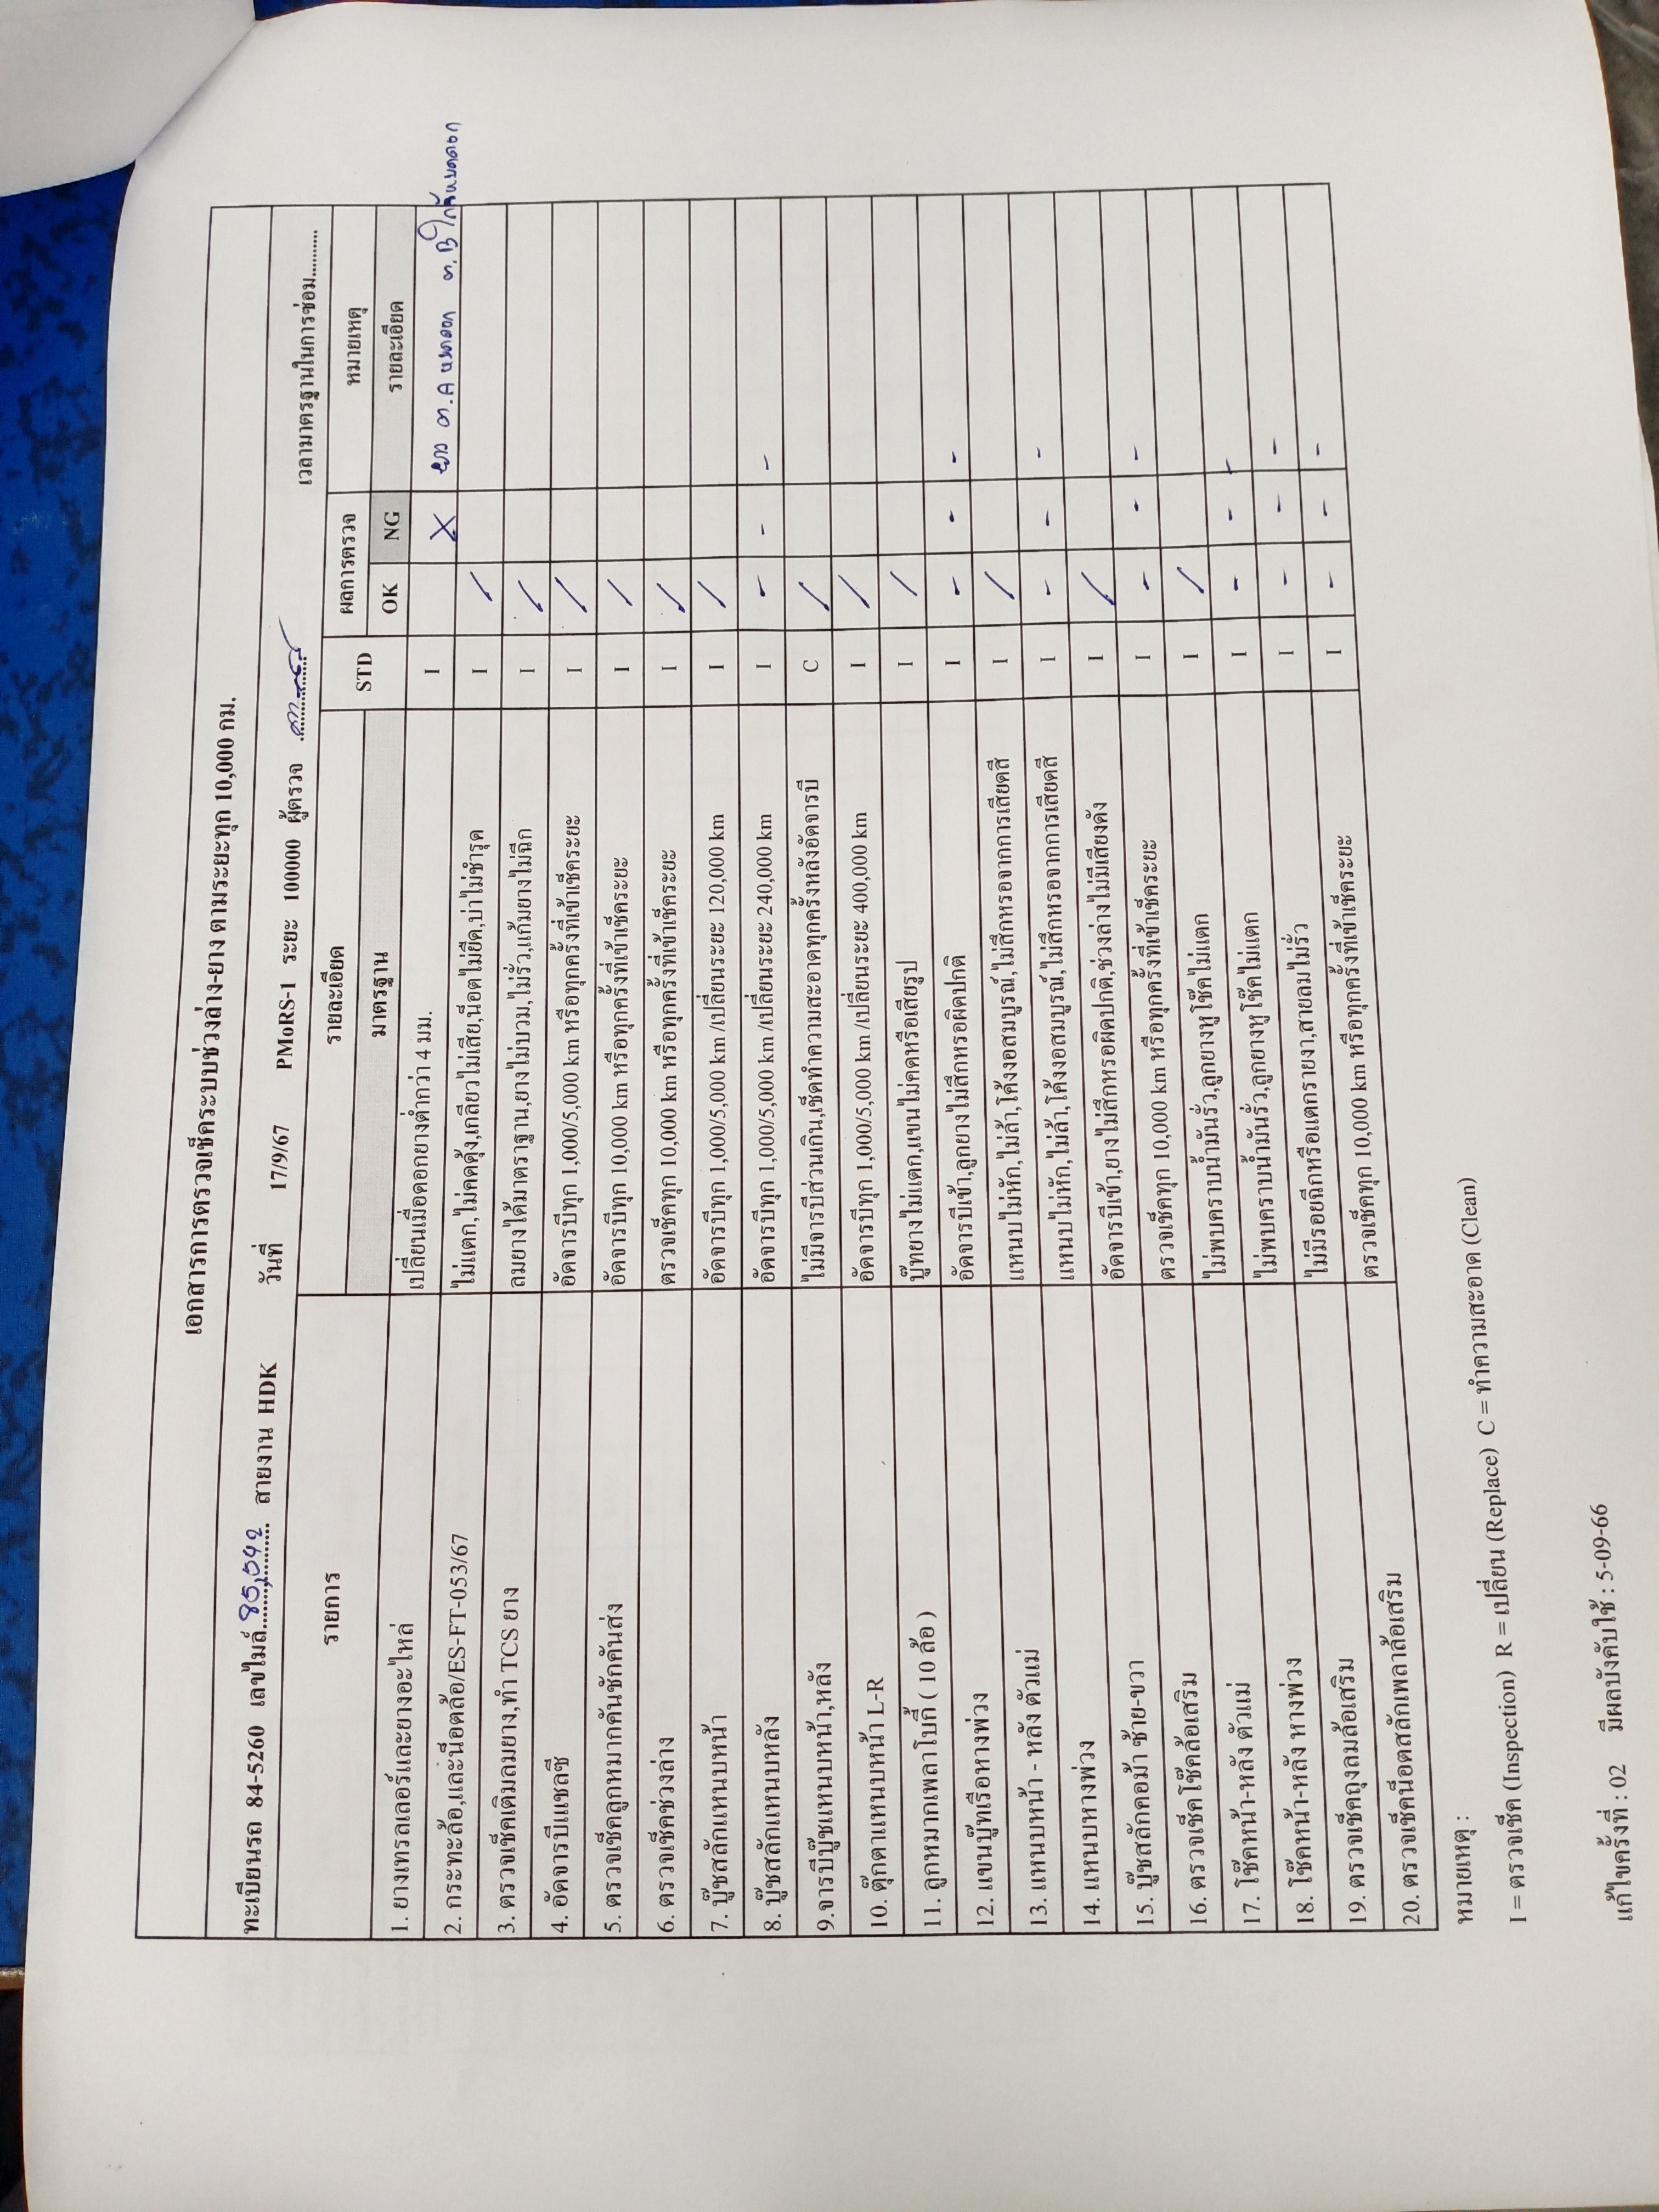 เอกสารการตรวจเช็คระบบช่วงล่าง-ยาง ตามระยะทุก 10,000 กม.
ทะเบียนรถ 84-5260 เลขไมล์ 85,592 สายงาน HDK วันที่ 17/9/67 PMoRS-1 ระยะ 100000 ผู้ตรวจ
เวลามาตรฐานในการซ่อม...........
รายการ รายละเอียด STD ผลการตรวจ หมายเหตุ
มาตรฐาน OK NG รายละเอียด
1. ยางเทรลเลอร์และยางอะไหล่ เปลี่ยนเมื่อดอกยางต่ำกว่า 4 มม. I X ยาง ต.A หมดดอก ต.B ใกล้หมดดอก
2. กระทะล้อ,และน็อตล้อ/ES-FT-053/67 ไม่แตก,ไม่คดคุ้ง,เกลียวไม่เสีย,น็อตไม่ยืด,บ่าไม่ชำรุด I /
3. ตรวจเช็คเติมลมยาง,ทำ TCS ยาง ลมยางได้มาตราฐาน,ยางไม่บวม,ไม่รั่ว,แก้มยางไม่ฉีก I /
4. อัดจารบีแชลซี อัดจารบีทุก 1,000/5,000 km หรือทุกครั้งที่เข้าเช็คระยะ I /
5. ตรวจเช็คลูกหมากคันชักคันส่ง อัดจารบีทุก 10,000 km หรือทุกครั้งที่เข้าเช็คระยะ I /
6. ตรวจเช็คช่วงล่าง ตรวจเช็คทุก 10,000 km หรือทุกครั้งที่เข้าเช็คระยะ I /
7. บู๊ชสลักแหนบหน้า อัดจารบีทุก 1,000/5,000 km /เปลี่ยนระยะ 120,000 km I /
8. บู๊ชสลักแหนบหลัง อัดจารบีทุก 1,000/5,000 km /เปลี่ยนระยะ 240,000 km I - - -
9.จารบีบู๊ชแหนบหน้า,หลัง ไม่มีจารบีส่วนเกิน,เช็ดทำความสะอาดทุกครั้งหลังอัดจารบี C /
10. ตุ๊กตาแหนบหน้า L-R อัดจารบีทุก 1,000/5,000 km /เปลี่ยนระยะ 400,000 km I /
11. ลูกหมากเพลาโบกี้ ( 10 ล้อ ) บู๊ทยางไม่แตก,แขนไม่คดหรือเสียรูป I /
12. แขนบู๊ทเรือหางพ่วง อัดจารบีเข้า,ลูกยางไม่สึกหรอผิดปกติ I - - -
13. แหนบหน้า - หลัง ตัวแม่ แหนบไม่หัก,ไม่ล้า,โค้งงอสมบูรณ์,ไม่สึกหรอจากการเสียดสี I /
14. แหนบหางพ่วง แหนบไม่หัก,ไม่ล้า,โค้งงอสมบูรณ์,ไม่สึกหรอจากการเสียดสี I - - -
15. บู๊ชสลักคอม้า ซ้าย-ขวา อัดจารบีเข้า,ยางไม่สึกหรอผิดปกติ,ช่วงล่างไม่มีเสียงดัง I /
16. ตรวจเช็คโช๊คล้อเสริม ตรวจเช็คทุก 10,000 km หรือทุกครั้งที่เข้าเช็คระยะ I - - -
17. โช๊คหน้า-หลัง ตัวแม่ ไม่พบคราบน้ำมันรั่ว,ลูกยางหูโช๊คไม่แตก I /
18. โช๊คหน้า-หลัง หางพ่วง ไม่พบคราบน้ำมันรั่ว,ลูกยางหูโช๊คไม่แตก I - - -
19. ตรวจเช็คถุงลมล้อเสริม ไม่มีรอยฉีกหรือแตกรายงา,สายลมไม่รั่ว I - - -
20. ตรวจเช็คน็อตสลักเพลาล้อเสริม ตรวจเช็คทุก 10,000 km หรือทุกครั้งที่เข้าเช็คระยะ I - - -
หมายเหตุ :
I = ตรวจเช็ค (Inspection) R = เปลี่ยน (Replace) C = ทำความสะอาด (Clean)
แก้ไขครั้งที่ : 02 มีผลบังคับใช้ : 5-09-66